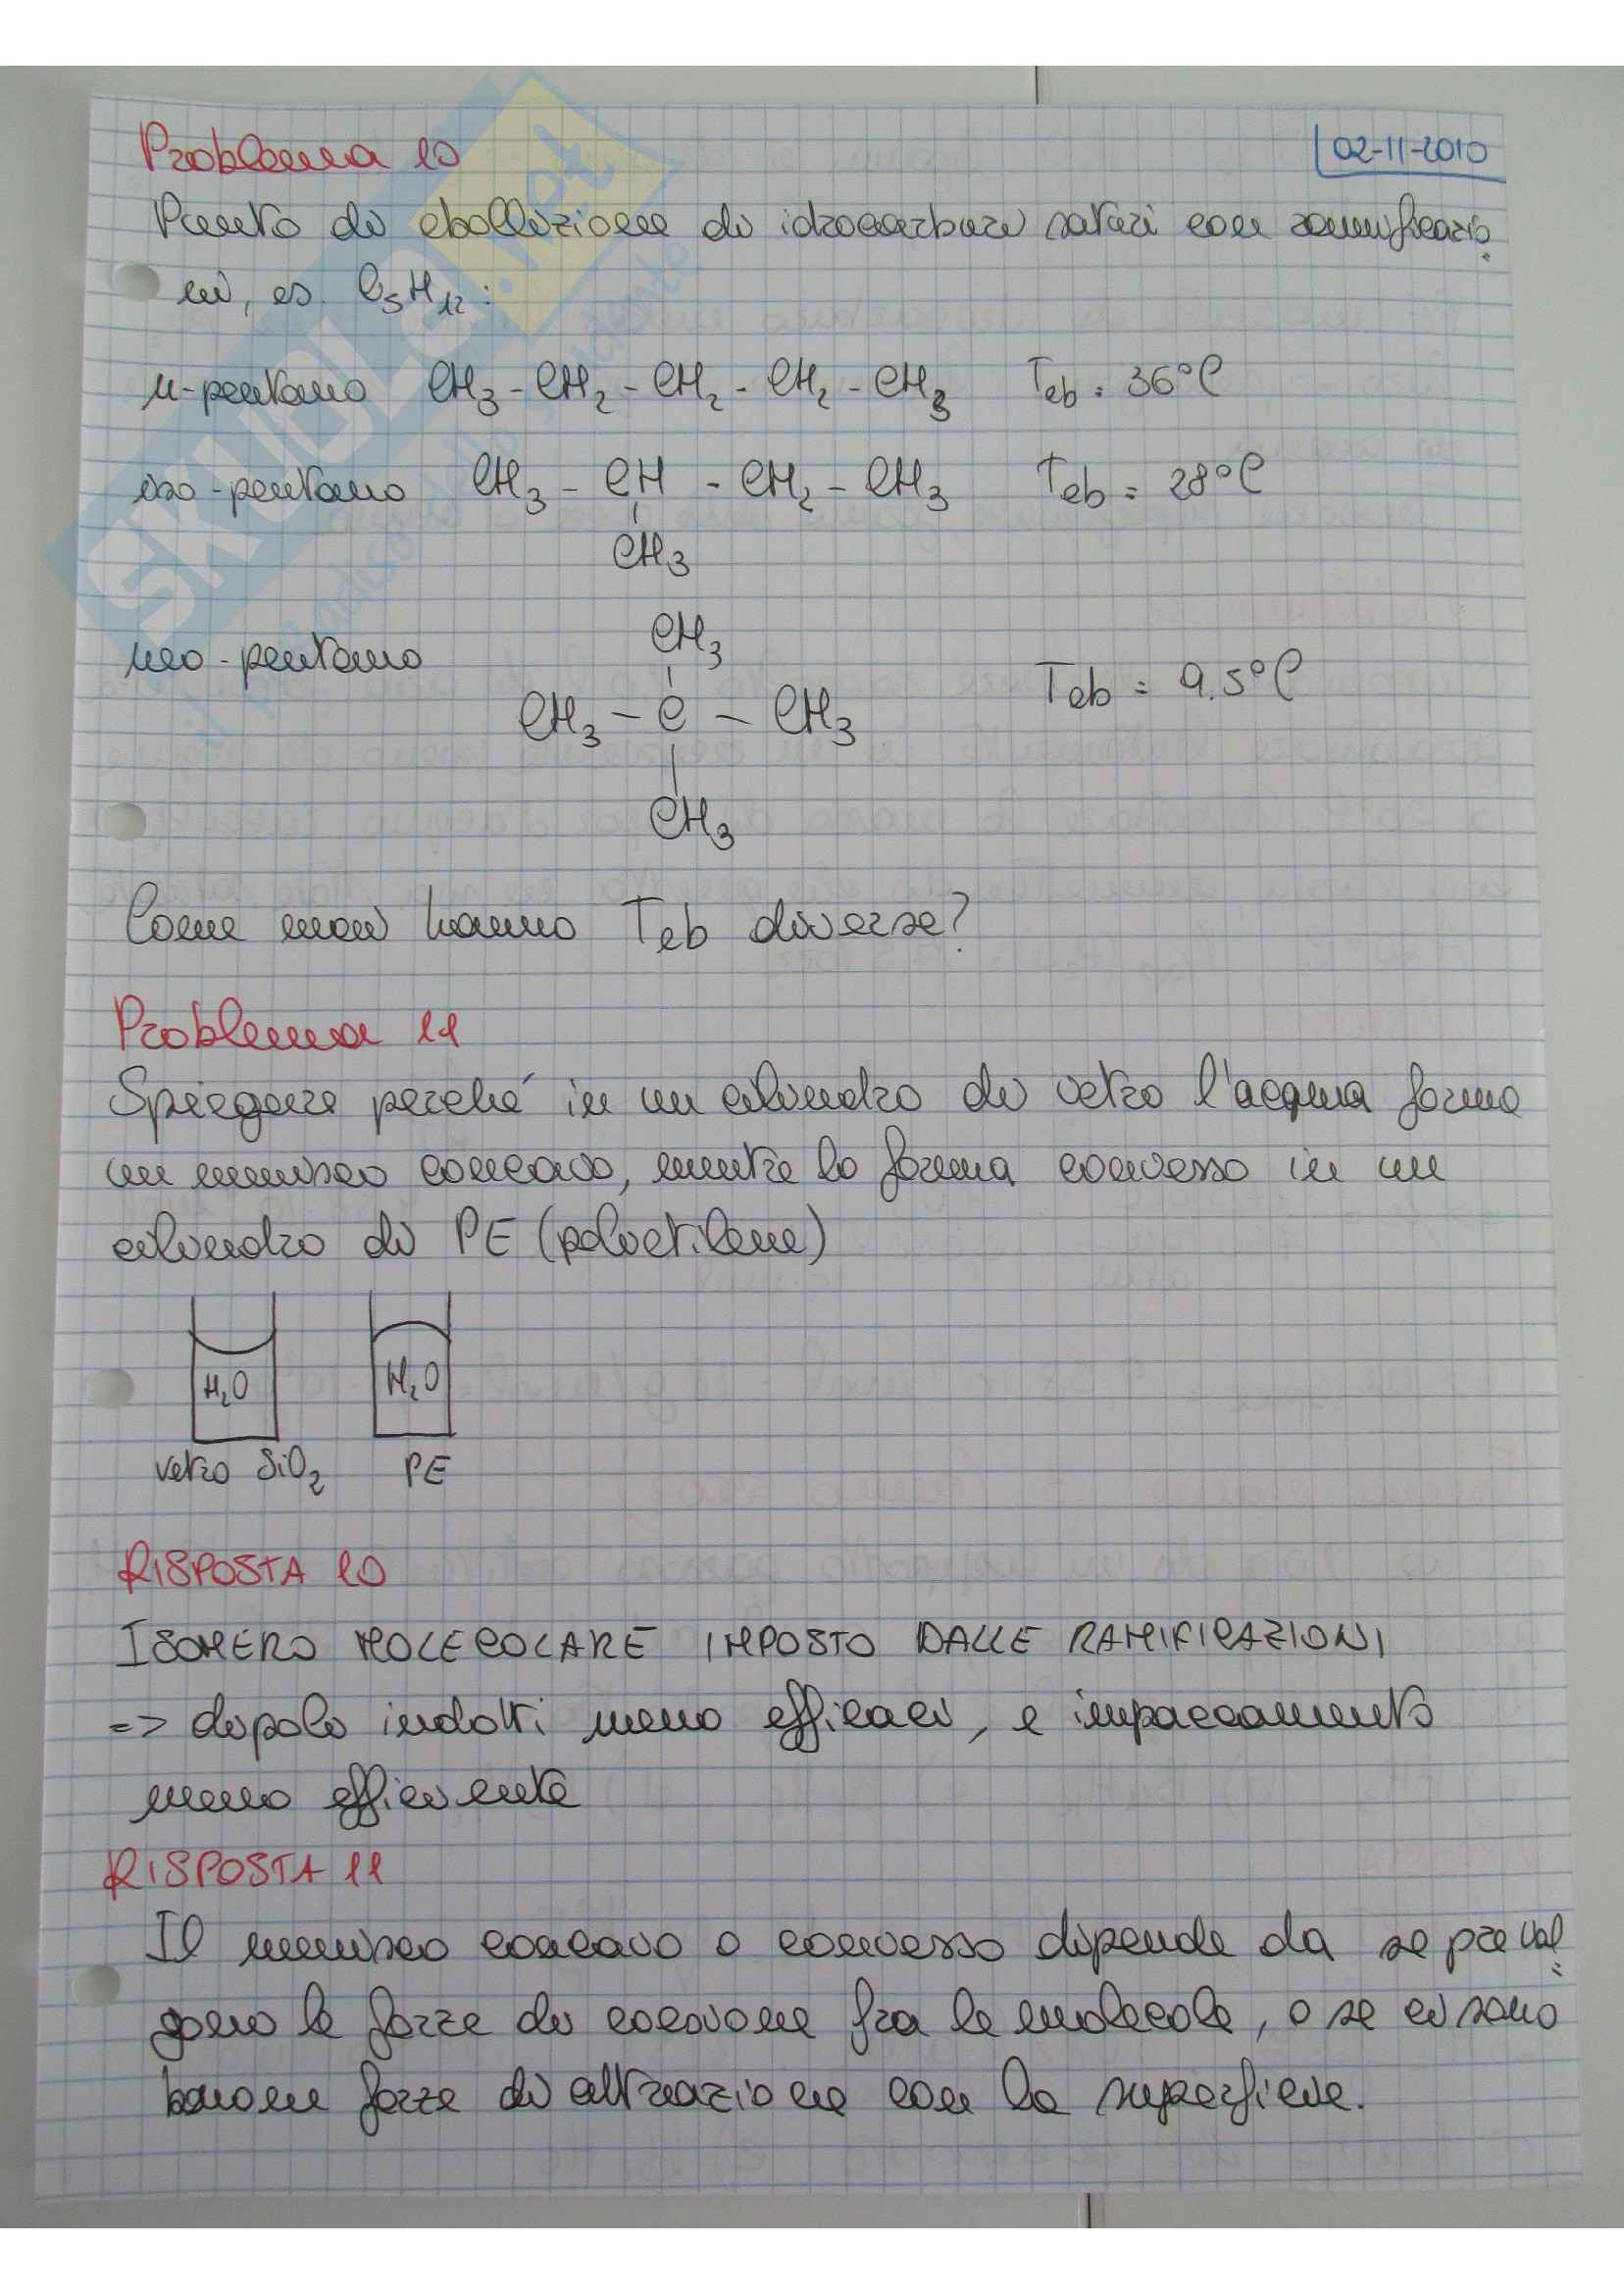 Problema 10
02-11-2010
Punto di ebollizione di idrocarburi saturi con ramificazio-
ni, es. C5H12:
n-pentano CH3-CH2-CH2-CH2-CH3 Teb = 36°C
iso-pentano CH3-CH-CH2-CH3 Teb = 28°C
CH3
CH3
neo-pentano
CH3-C-CH3 Teb = 9.5°C
CH3
Come mai hanno Teb diverse?
Problema 11
Spiegare perché in un cilindro di vetro l'acqua forma
un menisco concavo, mentre lo forma convesso in un
cilindro di PE (polietilene)
H2O H2O
vetro SiO2 PE
RISPOSTA 10
ISOMERO MOLECOLARE IMPOSTO DALLE RAMIFICAZIONI
=> dipoli indotti meno efficaci, e impaccamento
meno efficiente
RISPOSTA 11
Il menisco concavo o convesso dipende da se preval=
gono le forze di coesione fra le molecole, o se ci sono
buone forze di attrazione con la superficie.
SKUOLA.net